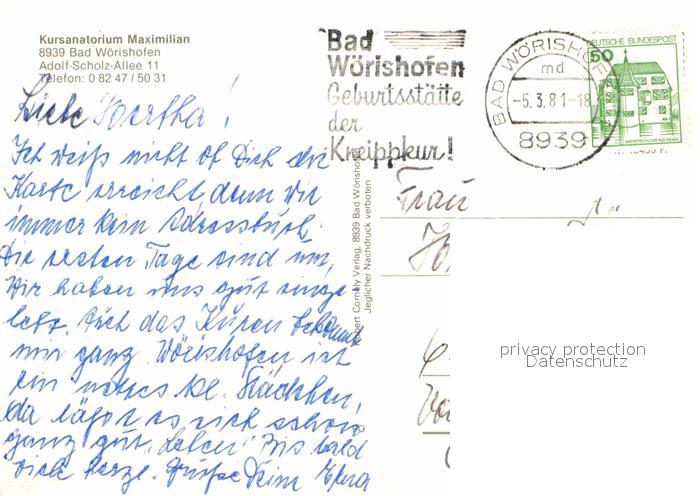 Kursanatorium Maximilian
8939 Bad Wörishofen
Adolf-Scholz-Allee 11
Telefon: 0 82 47 / 50 31
Liebe Hertha!
Ich weiß nicht ob Dich die
Karte erreicht, denn wir
immer kein Adressbuch.
Die ersten Tage sind um,
Wir haben uns gut einge
lebt. Auch das Kuren bekommt
mir ganz. Wörishofen ist
ein nettes kl. Städchen,
da läßt es sich schon
ganz gut "Leben" Bis bald
viele herzl. Grüße Deine
Robert Cornely Verlag, 8939 Bad Wörishofen
Jeglicher Nachdruck verboten
Bad
Wörishofen
Geburtsstätte
der
Kneippkur!
BAD WÖRISHOF
md
-5. 3. 81-18
8939
DEUTSCHE BUNDESPOST
50
WASSERSCHLOSS INZLINGEN
Frau
privacy protection
Datenschutz